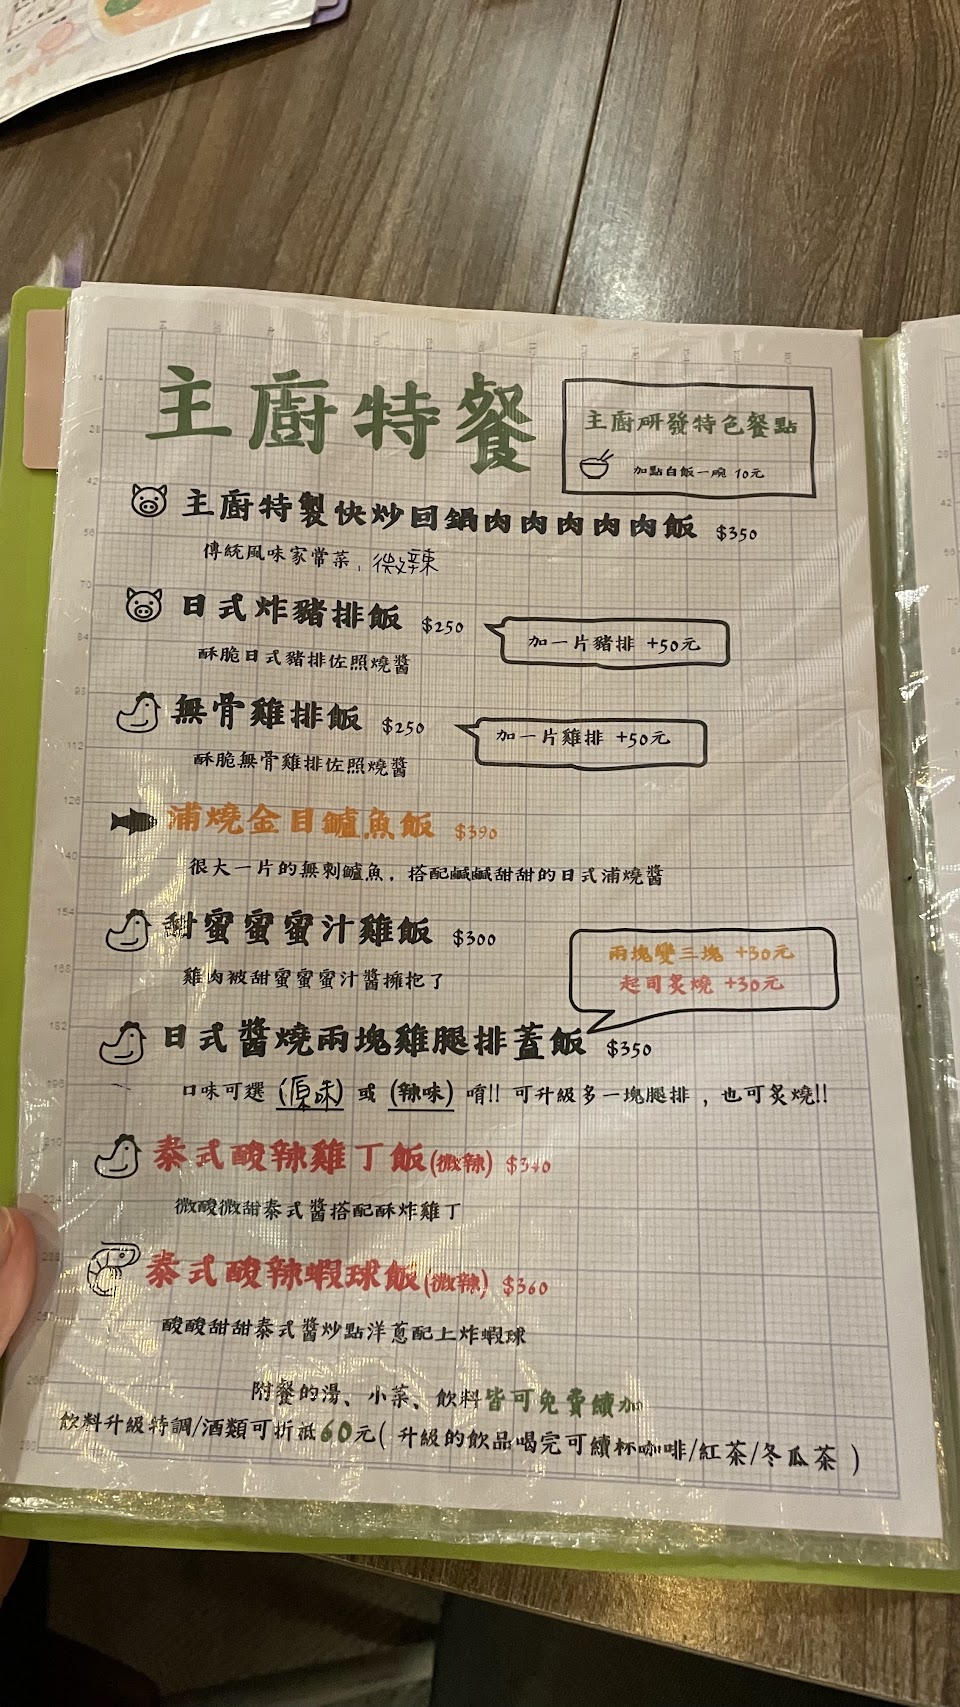 主廚特餐
主廚研發特色餐點
加點白飯一碗 10元
主廚特製快炒回鍋肉肉肉肉肉飯 $350
傳統風味家常菜，微辣
日式炸豬排飯 $250
加一片豬排 +50元
酥脆日式豬排佐照燒醬
無骨雞排飯 $250
加一片雞排 +50元
酥脆無骨雞排佐照燒醬
浦燒金目鱸魚飯 $390
很大一片的無刺鱸魚，搭配鹹鹹甜甜的日式浦燒醬
甜蜜蜜蜜汁雞飯 $300
雞肉被甜蜜蜜蜜汁醬擁抱了
兩塊變三塊 +30元
起司炙燒 +30元
日式醬燒兩塊雞腿排蓋飯 $350
口味可選 (原味) 或 (辣味) 唷!! 可升級多一塊腿排，也可炙燒!!
泰式酸辣雞丁飯(微辣) $340
微酸微甜泰式醬搭配酥炸雞丁
泰式酸辣蝦球飯(微辣) $360
酸酸甜甜泰式醬炒點洋蔥配上炸蝦球
附餐的湯、小菜、飲料皆可免費續加
飲料升級特調/酒類可折抵60元( 升級的飲品喝完可續杯咖啡/紅茶/冬瓜茶 )